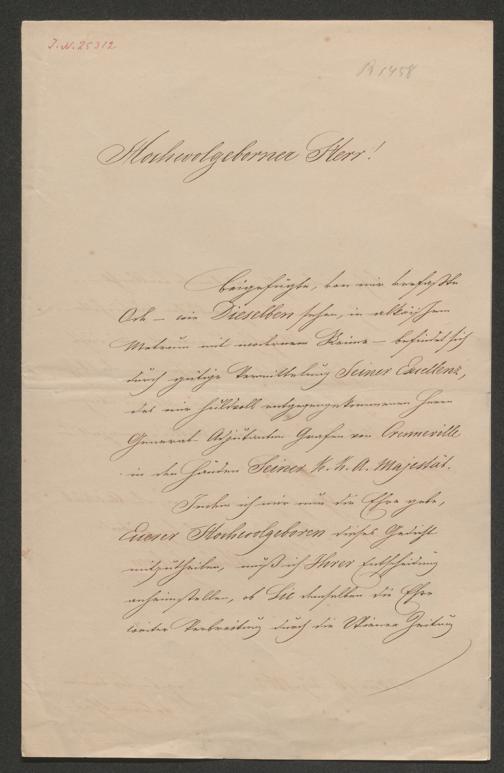 I.N. 25312
B 1458
Hochwolgeborner Herr!
Beigefügte, von mir verfaßte
Ode – wie Dieselben sehen, in alkäischem
Metrum mit modernem Reime – befindet sich
durch gütige Vermittelung Seiner Excellenz,
des mir huldvoll entgegengekommenen Herrn
General-Adjutanten Grafen von Crenneville
in den Händen Seiner K. K. A. Majestät.
Indem ich mir nun die Ehre gebe,
Euerer Hochwolgeboren dieses Gedicht
mitzutheilen, muß ich Ihrer Entscheidung
anheimstellen, ob Sie demselben die Ehre
weiter Verbreitung durch die Wiener Zeitung